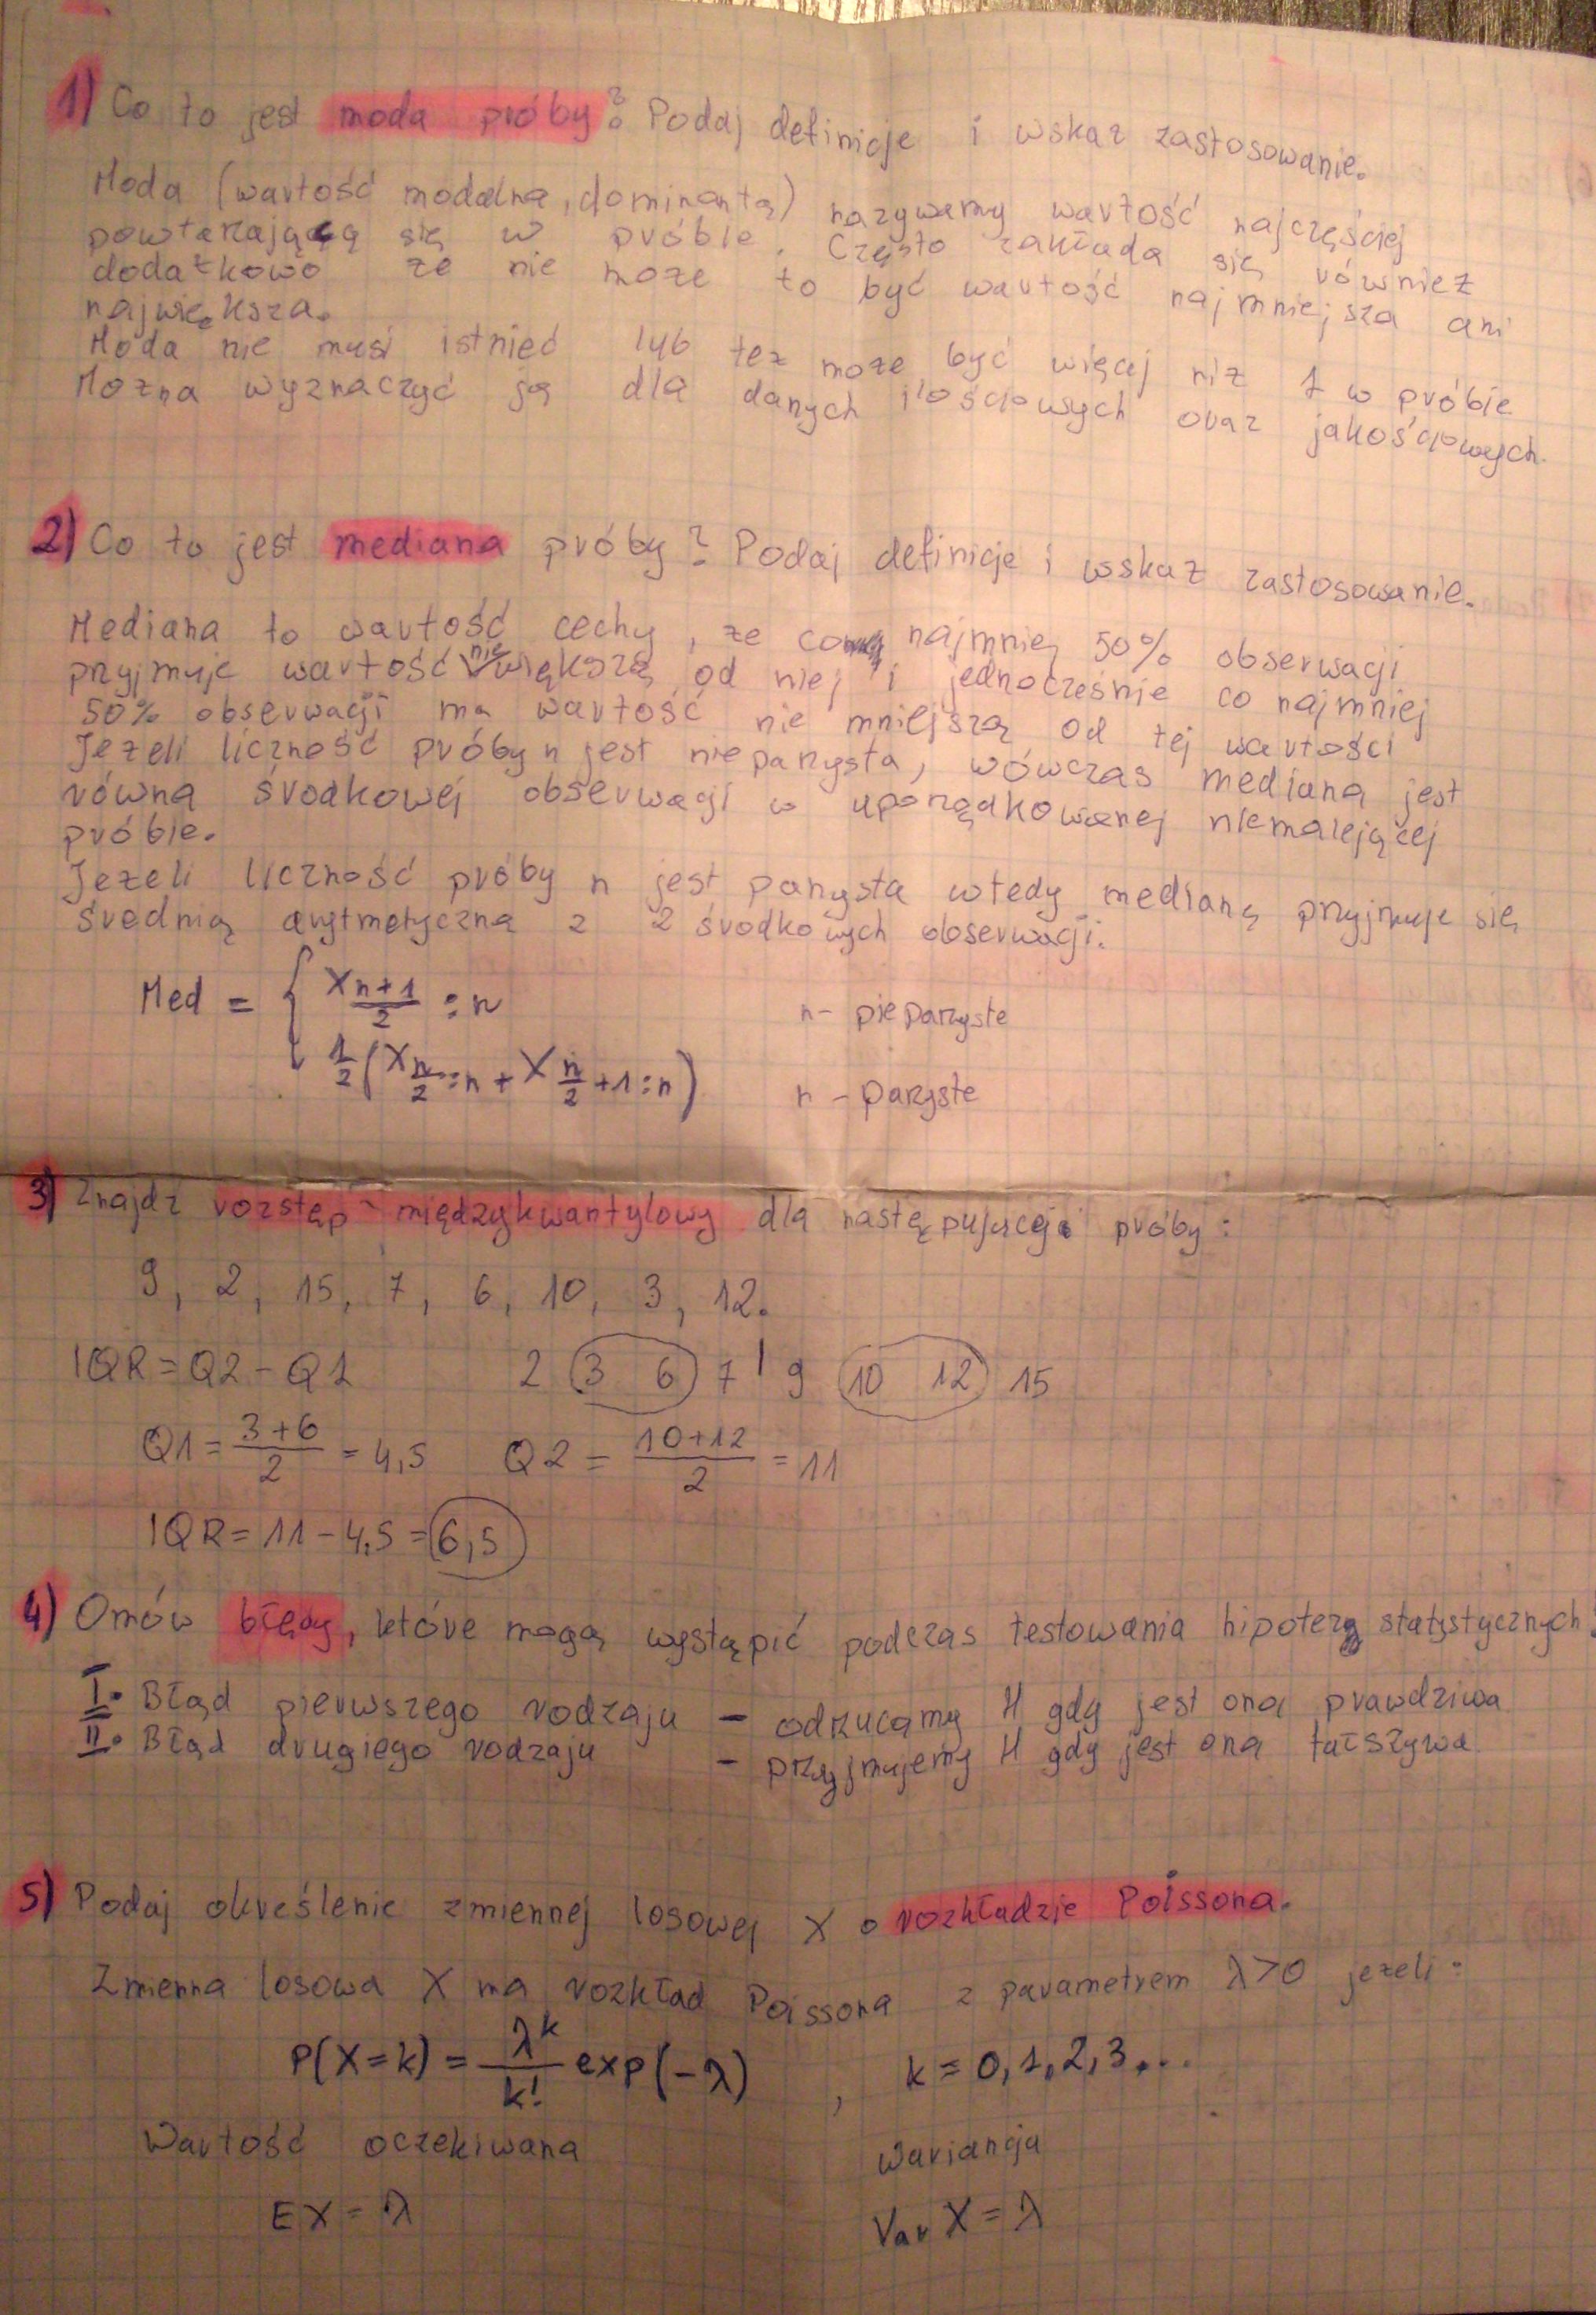 1) Co to jest moda próby? Podaj definicje i wskaz zastosowanie.
Moda (wartość modalna, dominantą) nazywamy wartość najczęściej
powtarzającą się w próbie. Często zakłada się również
dodatkowo ze nie moze to być wartość najmniejsza ani
największa.
Moda nie musi istnieć lub tez moze być więcej niz 1 w próbie
Mozna wyznaczyć ją dla danych ilościowych oraz jakościowych.
2) Co to jest mediana próby? Podaj definicje i wskaz zastosowanie.
Mediana to wartość cechy, ze co najmniej 50% obserwacji
przyjmuje wartość nie większą od niej i jednocześnie co najmniej
50% obserwacji ma wartość nie mniejszą od tej wartości
Jezeli liczność próby n jest nieparzysta, wówczas mediana jest
równa środkowej obserwacji w uporządkowanej niemalejącej
próbie.
Jezeli liczność próby n jest parzysta wtedy medianą przyjmuje się
średnią arytmetyczną z 2 środkowych obserwacji.
Med = { X n+1/2 : n n - nieparzyste
1/2 (X n/2 : n + X n/2 + 1 : n) n - parzyste
3) Znajdź rozstęp międzykwantylowy dla następującej próby:
9, 2, 15, 7, 6, 10, 3, 12.
IQR = Q2 - Q1 2 3 6 7 | 9 10 12 15
Q1 = 3+6/2 = 4,5 Q2 = 10+12/2 = 11
IQR = 11 - 4,5 = 6,5
4) Omów błędy, które mogą wystąpić podczas testowania hipotezy statystycznych!
I. Błąd pierwszego rodzaju - odrzucamy H gdy jest ona prawdziwa
II. Błąd drugiego rodzaju - przyjmujemy H gdy jest ona fałszywa
5) Podaj określenie zmiennej losowej X o rozkładzie Poissona.
Zmienna losowa X ma rozkład Poissona z parametrem λ>0 jezeli:
P(X=k) = λ^k/k! exp(-λ) , k = 0,1,2,3...
Wartość oczekiwana wariancja
EX = λ Var X = λ